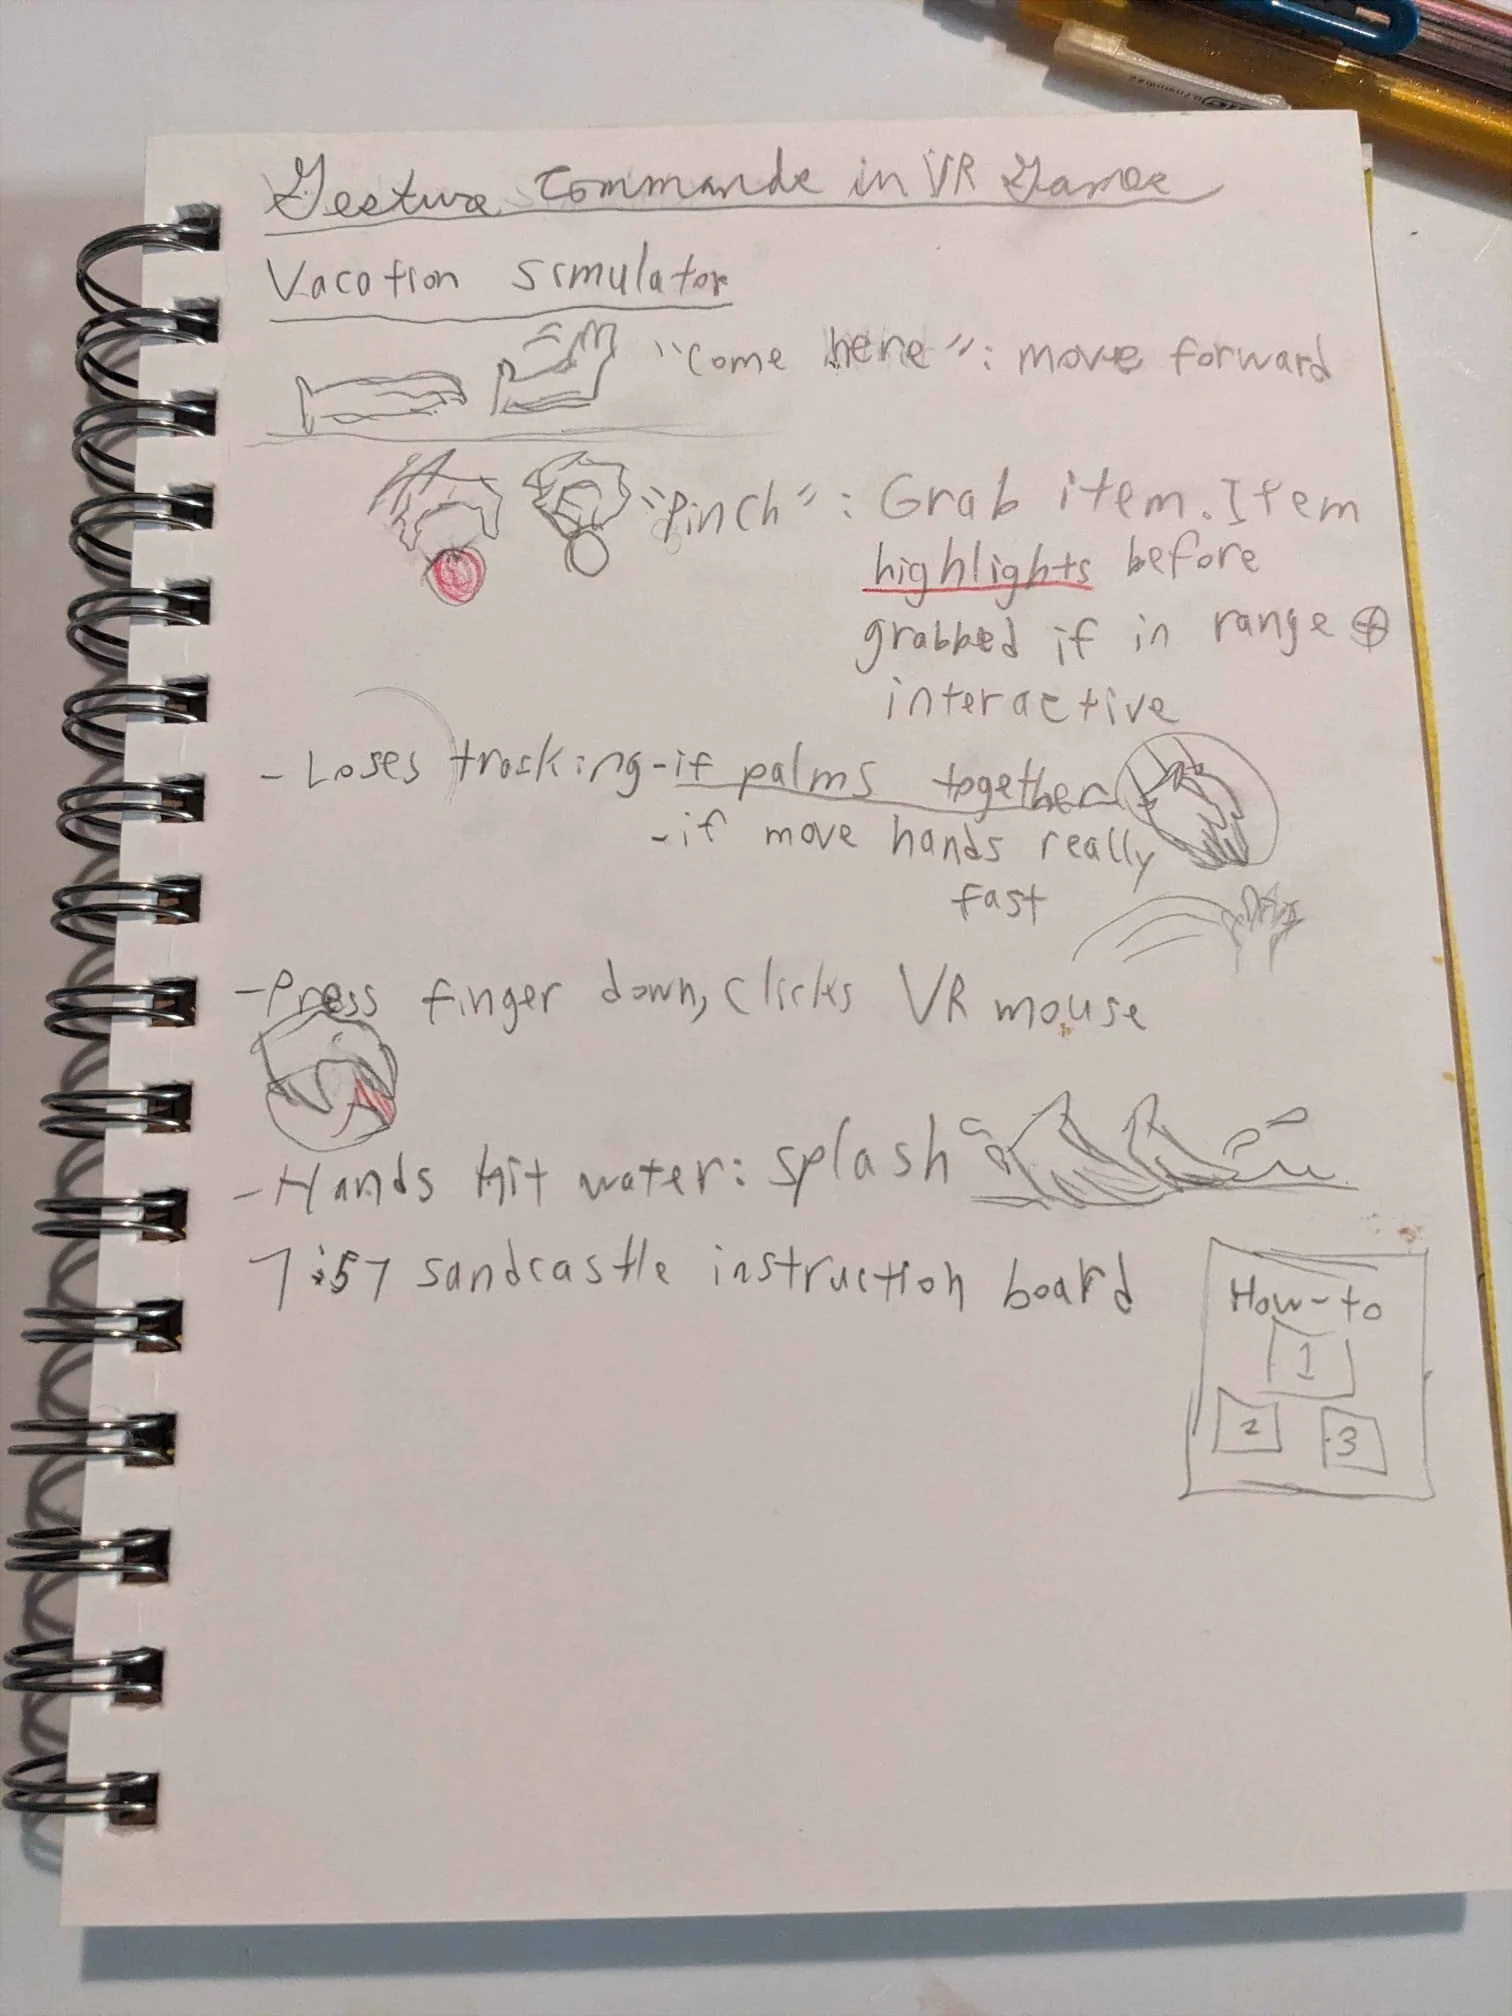 Gesture Commands in VR Games
Vacation Simulator
"Come here": move forward
"Pinch": Grab item. Item
highlights before
grabbed if in range ⊕
interactive
- Loses tracking - if palms together
- if move hands really
fast
- Press finger down, clicks VR mouse
- Hands hit water: splash
7:57 sandcastle instruction board
How-to
1
2
3